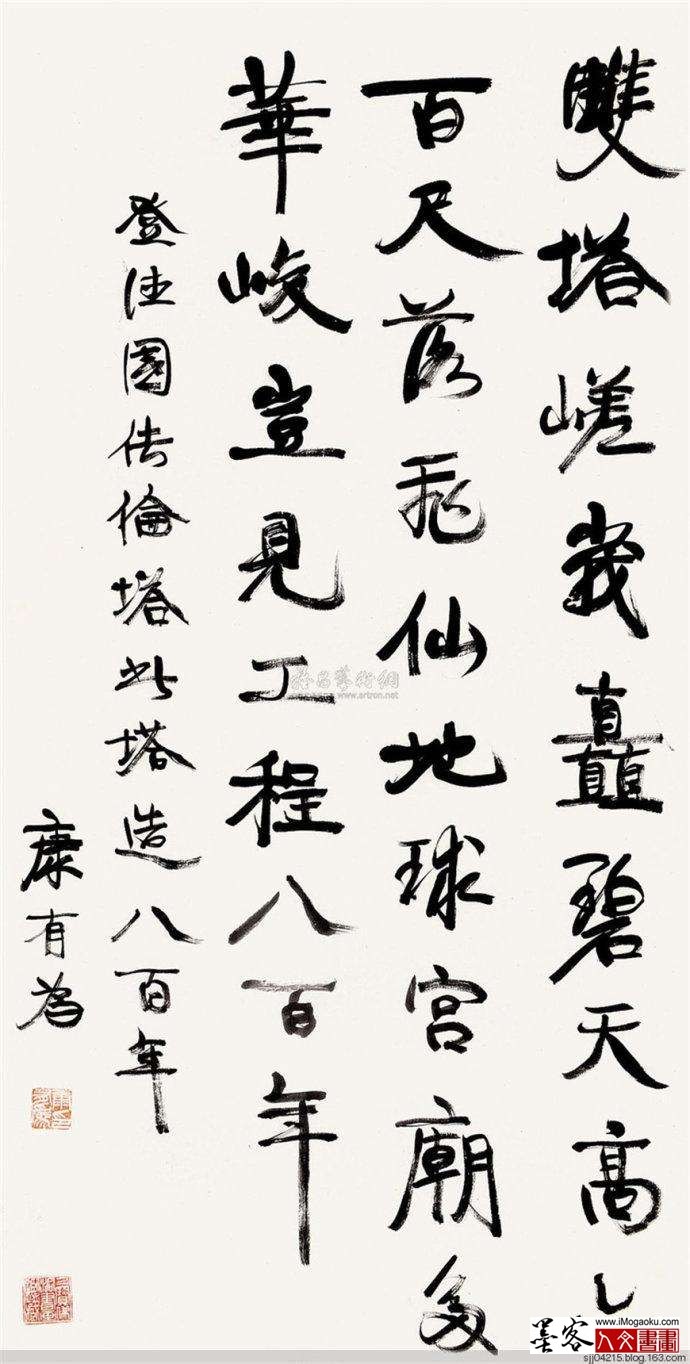 雙塔嵯峩矗碧天高〻
百尺落飛仙地球宮廟多
華峻豈見工程八百年
登法國传倫塔此塔造八百年
康有為
www.artron.net
墨客
人文書畫
www.iMogaoku.com
sjj04215.blog.163.com